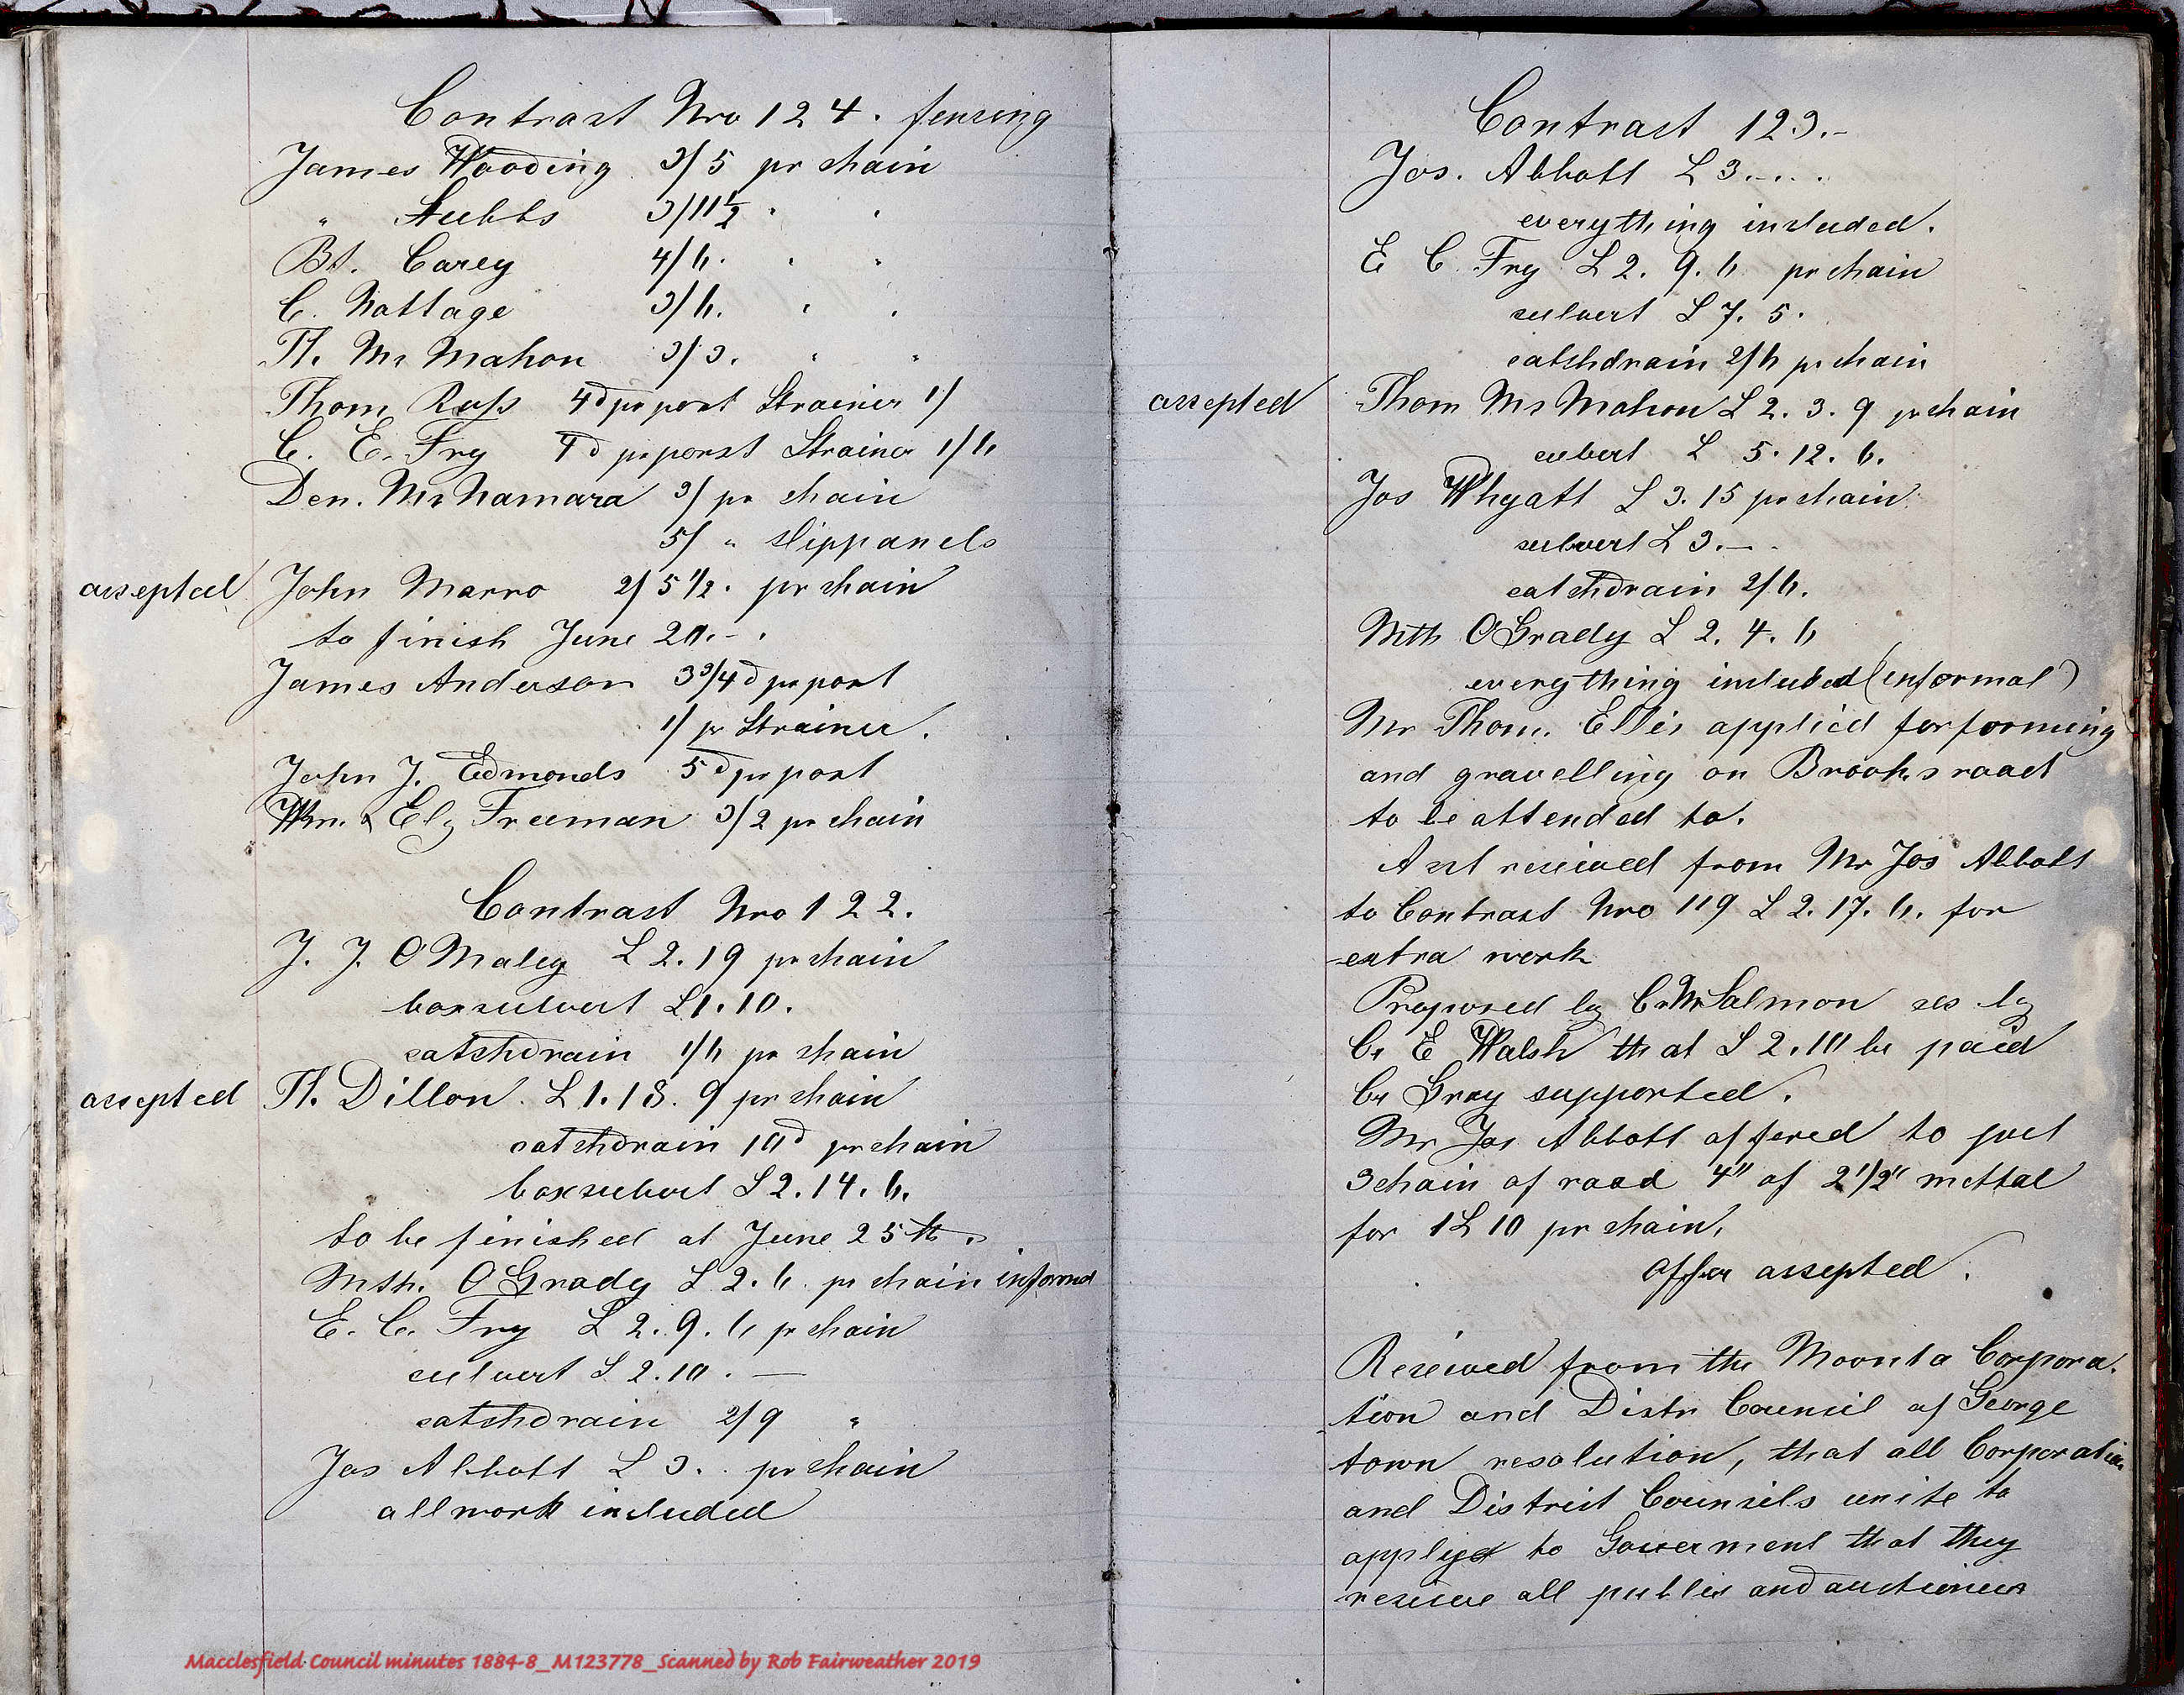 Contract Nro 124. fencing
James Wooding 3/5 pr chain
" Stubbs 3/11½ " "
Bt. Carey 4/6. " "
C. Nottage 3/6. " "
Th. Mc Mahon 3/3. " "
Thom Russ 4d pr post Strainer 1/
C. E. Fry 4d pr porst Strainer 1/6
Den. McNamara 3/ pr chain
5/ " slippanels
accepted John Marro 2/5 1/2. pr chain
to finish June 20. - .
James Anderson 3 3/4d pr post
1/ pr Strainer.
John J. Edmonds 5d pr post
Wm. & Ely Freeman 3/2 pr chain
Contract Nro 122.
J. J. O'Maley L 2.19 pr chain
boxculvert L1.10.
catchdrain 1/6 pr chain
accepted Th. Dillon. L 1.18.9 pr chain
catchdrain 10d pr chain
boxculvert L 2.14.6.
to be finished at June 25th.
Mth. O'Grady L 2.6 pr chain informal
E. C. Fry L 2.9.6 pr chain
culvert L 2.10. —
catchdrain 2/9 "
Jos Abbott L 3. . pr chain
all work included
Contract 123.-
Jos. Abbott L 3.-.-.
everything included.
E C. Fry L 2. 9. 6 pr chain
culvert L 7. 5.
catchdrain 2/6 pr chain
accepted Thom McMahon L 2. 3. 9 pr chain
culvert L 5. 12. 6.
Jos Whyatt L 3. 15 pr chain
culvert L 3.—.
catchdrain 2/6.
Mth O'Grady L 2. 4. 6
everything included (informal)
Mr Thom. Ellis applied for forming
and gravelling on Brooks road
to be attended to.
Act received from Mr Jos Abbott
to Contract Nro 119 L 2. 17. 6. for
extra work
Proposed by Cr McSalmon sec by
Cr E Walsh that L 2.10 be paid
Cr Gray supported.
Mr Jos Abbott offered to put
3 chain of road 4" of 2 1/2" mettal
for 1L 10 pr chain.
Offer accepted.
Received from the Moonta Corpora.
tion and Distr Council of George
town resolution, that all Corporation
and District Councils unite to
apply to Goverment that they
receive all public and auctioneer
Macclesfield Council minutes 1884-8_M123778_Scanned by Rob Fairweather 2019